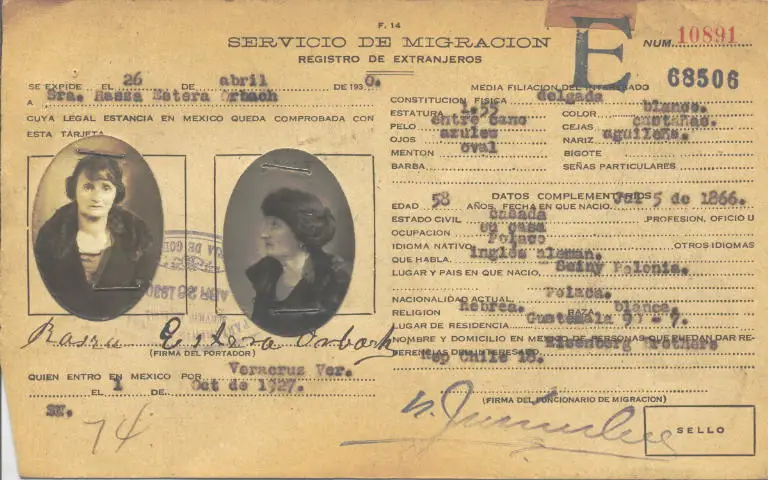 F. 14
SERVICIO DE MIGRACION
REGISTRO DE EXTRANJEROS
NUM. 10891
E
68506
SE EXPIDE EL 26 DE abril DE 1930.
A Sra. Rassa Estera Orbach
CUYA LEGAL ESTANCIA EN MEXICO QUEDA COMPROBADA CON
ESTA TARJETA
Rassa Estera Orbach
(FIRMA DEL PORTADOR)
QUIEN ENTRO EN MEXICO POR Veracruz Ver.
EL 1 DE Oct de 1927.
SN.
74
MEDIA FILIACION DEL INTERESADO
CONSTITUCION FISICA delgada
ESTATURA 1.55 COLOR blanco.
PELO entre cano CEJAS castañas.
OJOS azules NARIZ aguileña.
MENTON oval BIGOTE
BARBA SEÑAS PARTICULARES
DATOS COMPLEMENTARIOS
EDAD 58 AÑOS, FECHA EN QUE NACIO 5 de 1866.
ESTADO CIVIL casada PROFESION, OFICIO U
OCUPACION su casa
IDIOMA NATIVO Polaco OTROS IDIOMAS
QUE HABLA. inglés aleman.
LUGAR Y PAIS EN QUE NACIO. Polonia.
NACIONALIDAD ACTUAL Polaca.
RELIGION Hebrea. RAZA blanca.
LUGAR DE RESIDENCIA Guatemala
NOMBRE Y DOMICILIO EN MEXICO DE PERSONAS QUE PUEDAN DAR RE-
FERENCIAS DEL INTERESADO Eisenberg Brothers
Rep Chile 18.
(FIRMA DEL FUNCIONARIO DE MIGRACION)
SELLO